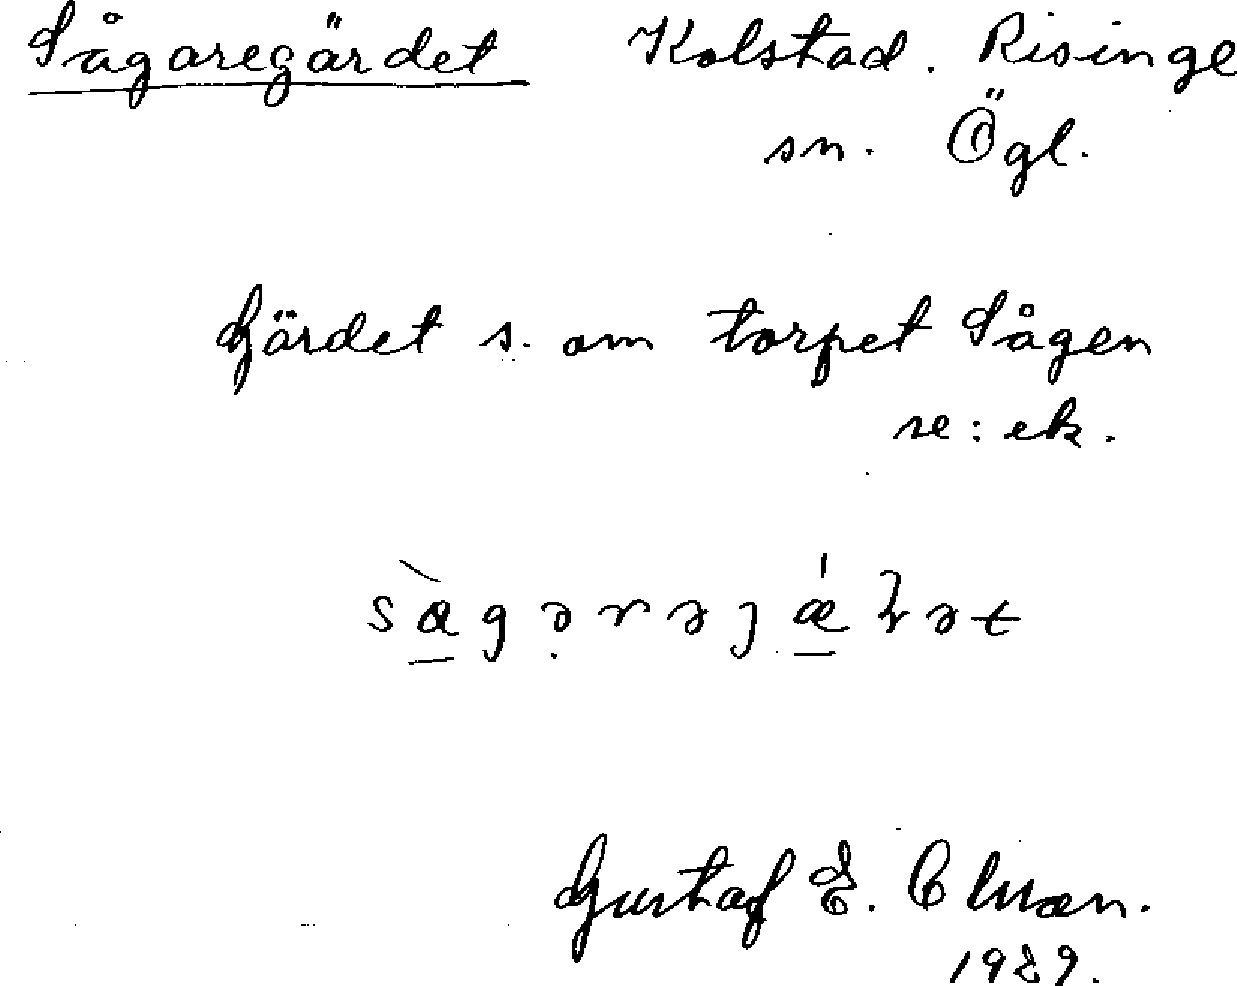 Sågaregärdet Kolstad. Risinge
sn. Ögl.
Gärdet s. om torpet Sågen
se: ek.
Gustaf E.